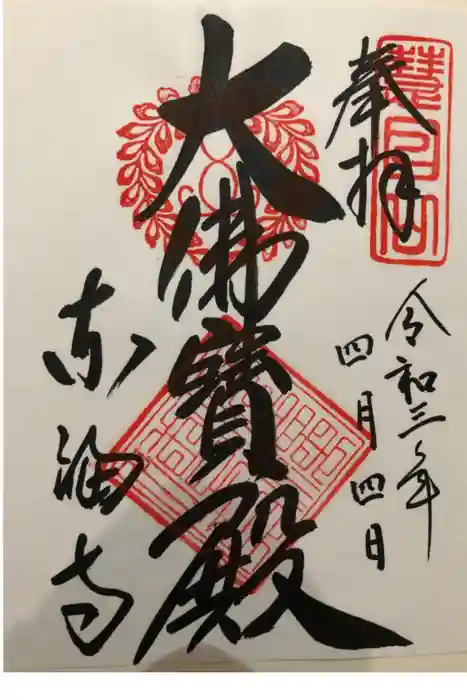 奉拝
慧日山
令和三年
四月四日
大佛寶殿
東福寺